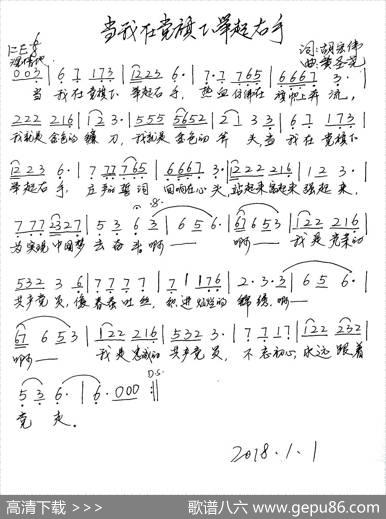 当我在党旗下举起右手
1=E 6/8
深情地
词:胡宏伟
0 0 3 | 6 7 1 7 3 | 1 2 2 3 6· | 7· 7 7 6 5 | 6 6 6 7 3· |
当 我在党旗下 举起右手, 热血仿佛在旗帜上奔流,
2 2 2 2 1 6 | 1 2 3· | 5 5 5 5 6 5 2 | 2 1 3 3 | 6 7 1 7 3 |
我就是金色的镰刀,我就是金色的斧头,当我在党旗下
1 2 2 3 6· | 7 7 7 7 6 5 | 6 6 6 7 3· | 1 2 2 2 2 1 6 | 1 2 3· |
举起右手, 庄严的誓词 回响在心头,站起来富起来强起来,
7 7 7 2 3 2 7 | 5 3 6 3 | 6 5 6· | 6 7 6 5 3 | 1 2 2 2 1 6 |
为实现中国梦去奋斗啊—— 啊—— 我是光荣的
5 3 2 3 6 | 7 7 7 7 | 7 1 1 7 6 | 2· 3· 3 | 6 5 6· |
共产党员,像春蚕吐丝,织进灿烂的锦绣,啊——
6 7 6 5 3 | 1 2 2 2 1 6 | 5 3 2 3· | 7· 7 1 7 | 1 2 2 2 3 2 |
啊—— 我是忠诚的共产党员,不忘初心,永远跟着
D.S.
5 3 6· | 6· 0 0 0 :||
党 走.
2018.1.1
高清下载 >>>
歌谱八六 www.gepu86.com